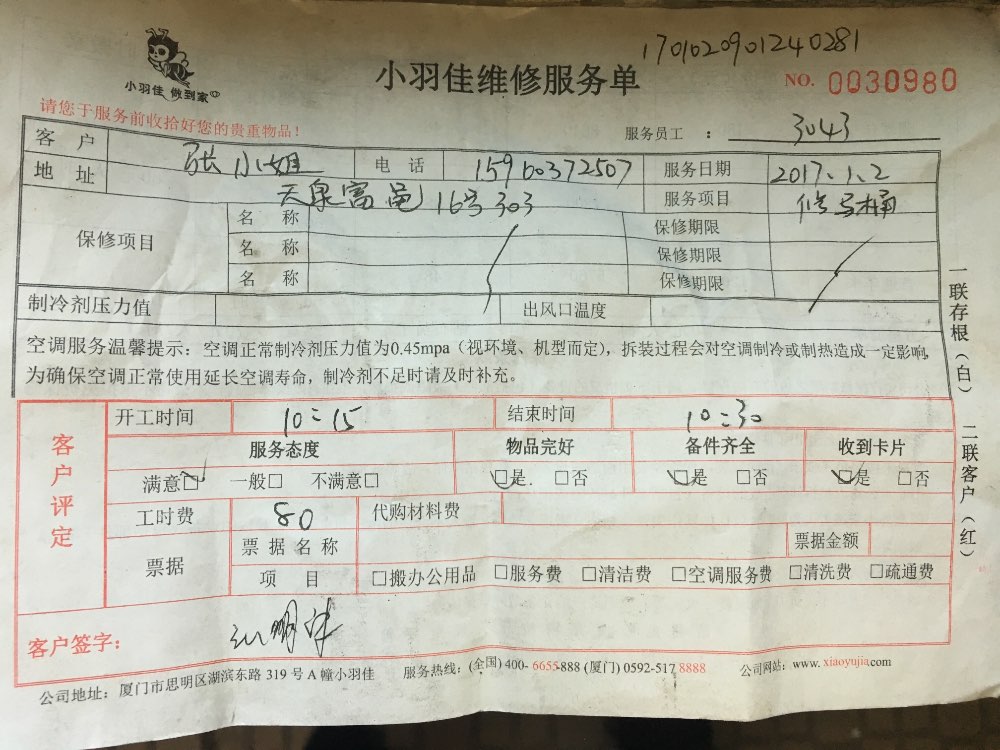 170102901240281
小羽佳 做到家
小羽佳维修服务单
NO. 0030980
请您于服务前收拾好您的贵重物品！
服务员工 ： 3043
客 户 张小姐 电 话 15960372507 服务日期 2017.1.2
地 址 天泉富邑16号303 服务项目 修马桶
保修项目 名 称 保修期限
名 称 保修期限
名 称 保修期限
制冷剂压力值 出风口温度
空调服务温馨提示：空调正常制冷剂压力值为0.45mpa（视环境、机型而定），拆装过程会对空调制冷或制热造成一定影响，
为确保空调正常使用延长空调寿命，制冷剂不足时请及时补充。
客户评定
开工时间 10:15 结束时间 10:30
服务态度 物品完好 备件齐全 收到卡片
满意☑ 一般□ 不满意□ ☑是 □否 ☑是 □否 ☑是 □否
工时费 80 代购材料费
票据 票据名称 票据金额
项 目 □搬办公用品 □服务费 □清洁费 □空调服务费 □清洗费 □疏通费
客户签字：
公司地址：厦门市思明区湖滨东路 319 号 A 幢小羽佳 服务热线：(全国) 400- 6655-888 (厦门) 0592-517 8888 公司网站：www. xiaoyujia.com
一联存根（白） 二联客户（红）